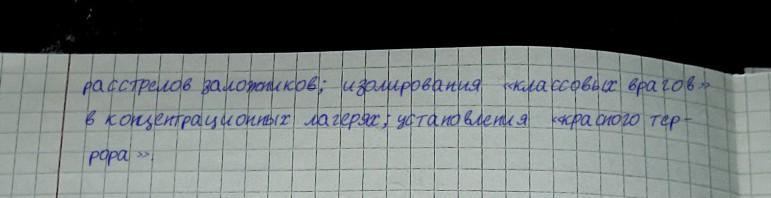 расстрелов заложников; изолирования «классовых врагов»
в концентрационных лагерях; установления «красного тер-
рора».